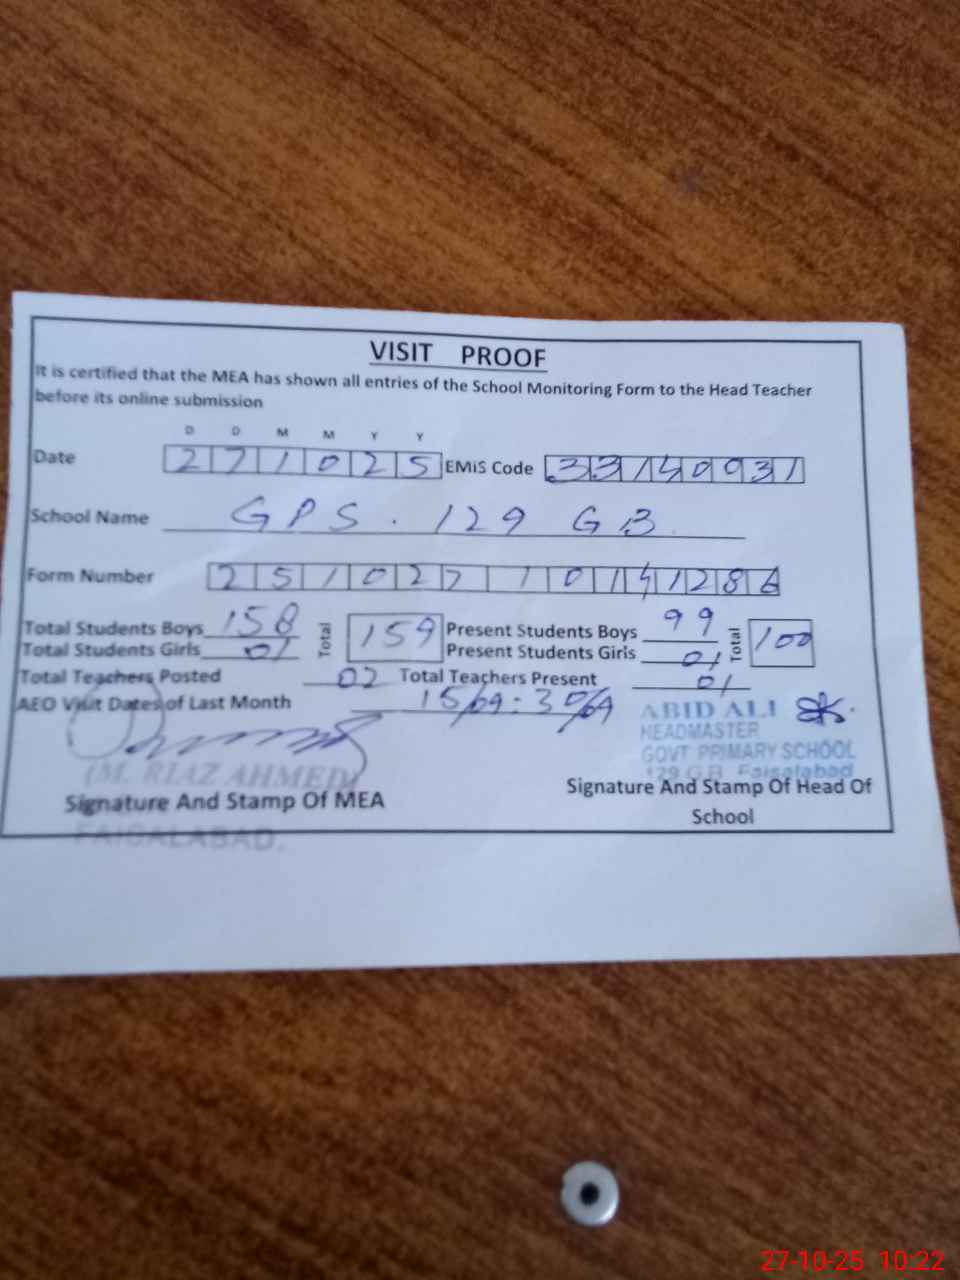 VISIT PROOF
It is certified that the MEA has shown all entries of the School Monitoring Form to the Head Teacher
before its online submission
D D M M Y Y
Date 271025 EMiS Code 33140931
School Name GPS. 129 GB
Form Number 251027 101141286
Total Students Boys 158 Total 159 Present Students Boys 99 Total 100
Total Students Girls 01 Present Students Girls 01
Total Teachers Posted 02 Total Teachers Present 01
AEO Visit Dates of Last Month 15/09: 30/09
ABID ALI
HEADMASTER
GOVT PRIMARY SCHOOL
129 G.B. Faisalabad
(M. RIAZ AHMED)
Signature And Stamp Of MEA
Signature And Stamp Of Head Of
School
FAISALABAD.
27-10-25 10:22